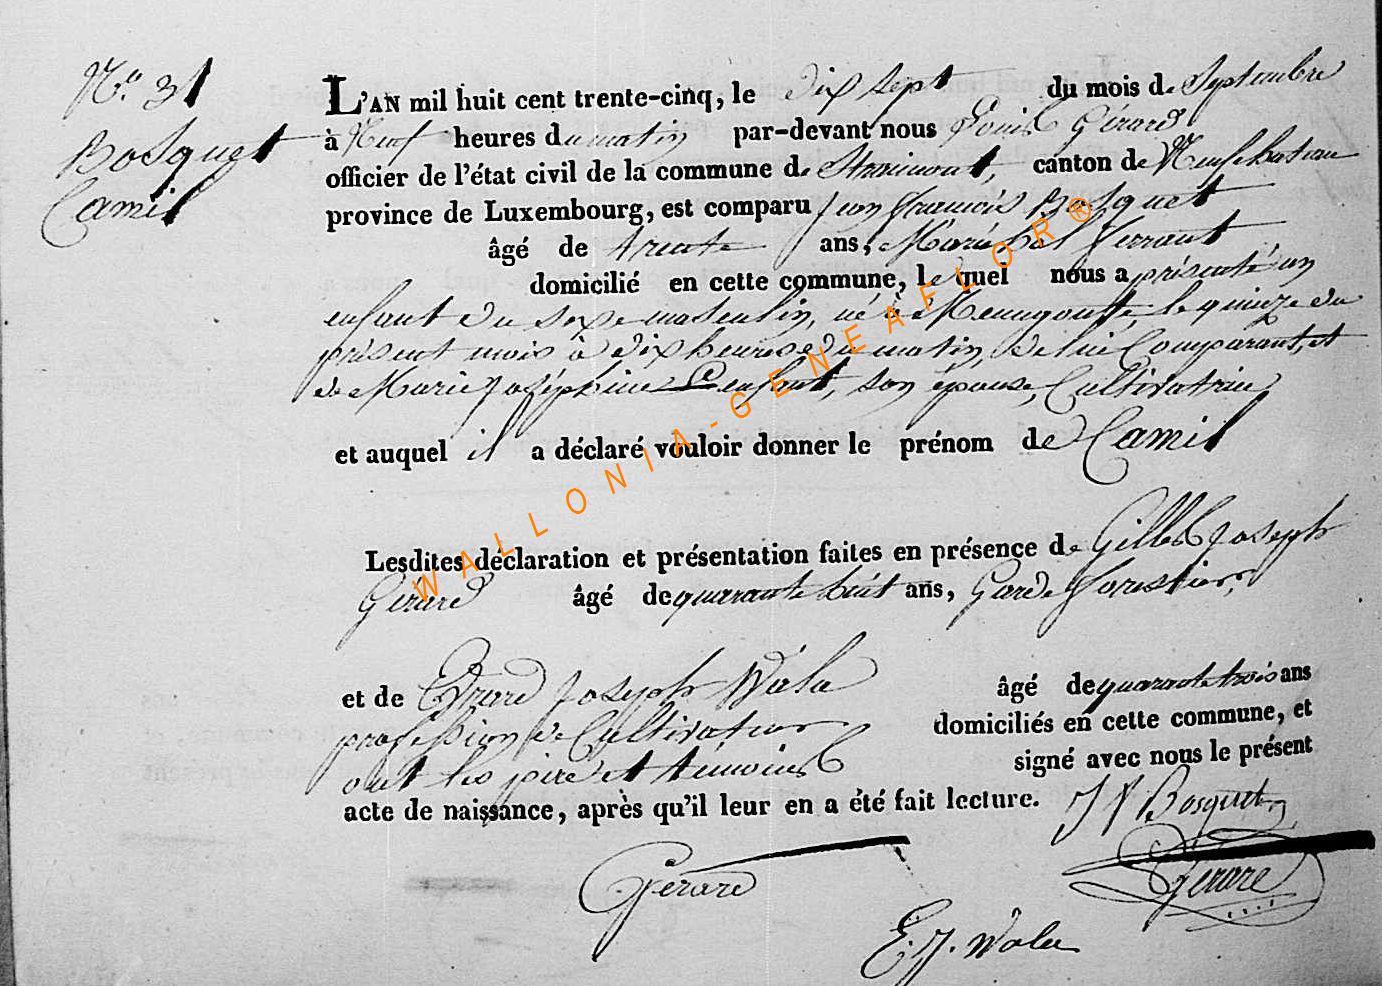 N.° 31
Bosquet
Camil
L'AN mil huit cent trente-cinq, le dix sept du mois de Septembre
à Neuf heures du matin par-devant nous Louis Gérard
officier de l'état civil de la commune de Straimont, canton de Neufchateau
province de Luxembourg, est comparu Jean François Bosquet
âgé de trente ans, Maréchal ferrant
domicilié en cette commune, lequel nous a présenté un
enfant du sexe masculin, né à Menugoutte, le quinze du
présent mois à dix heures du matin, de lui Comparant, et
de Marie Joséphine Lenfant, son épouse, Cultivatrice
et auquel il a déclaré vouloir donner le prénom de Camil
Lesdites déclaration et présentation faites en présence de Gilles Joseph
Gérard âgé de quarante huit ans, Garde forestier,
et de Erard Joseph Wala âgé de quarante trois ans
profession de Cultivateur domiciliés en cette commune, et
ont les père et témoins signé avec nous le présent
acte de naissance, après qu'il leur en a été fait lecture. J F Bosquet
Gérard Gérard
E. J. Wala
WALLONIA-GENEAFLOR®